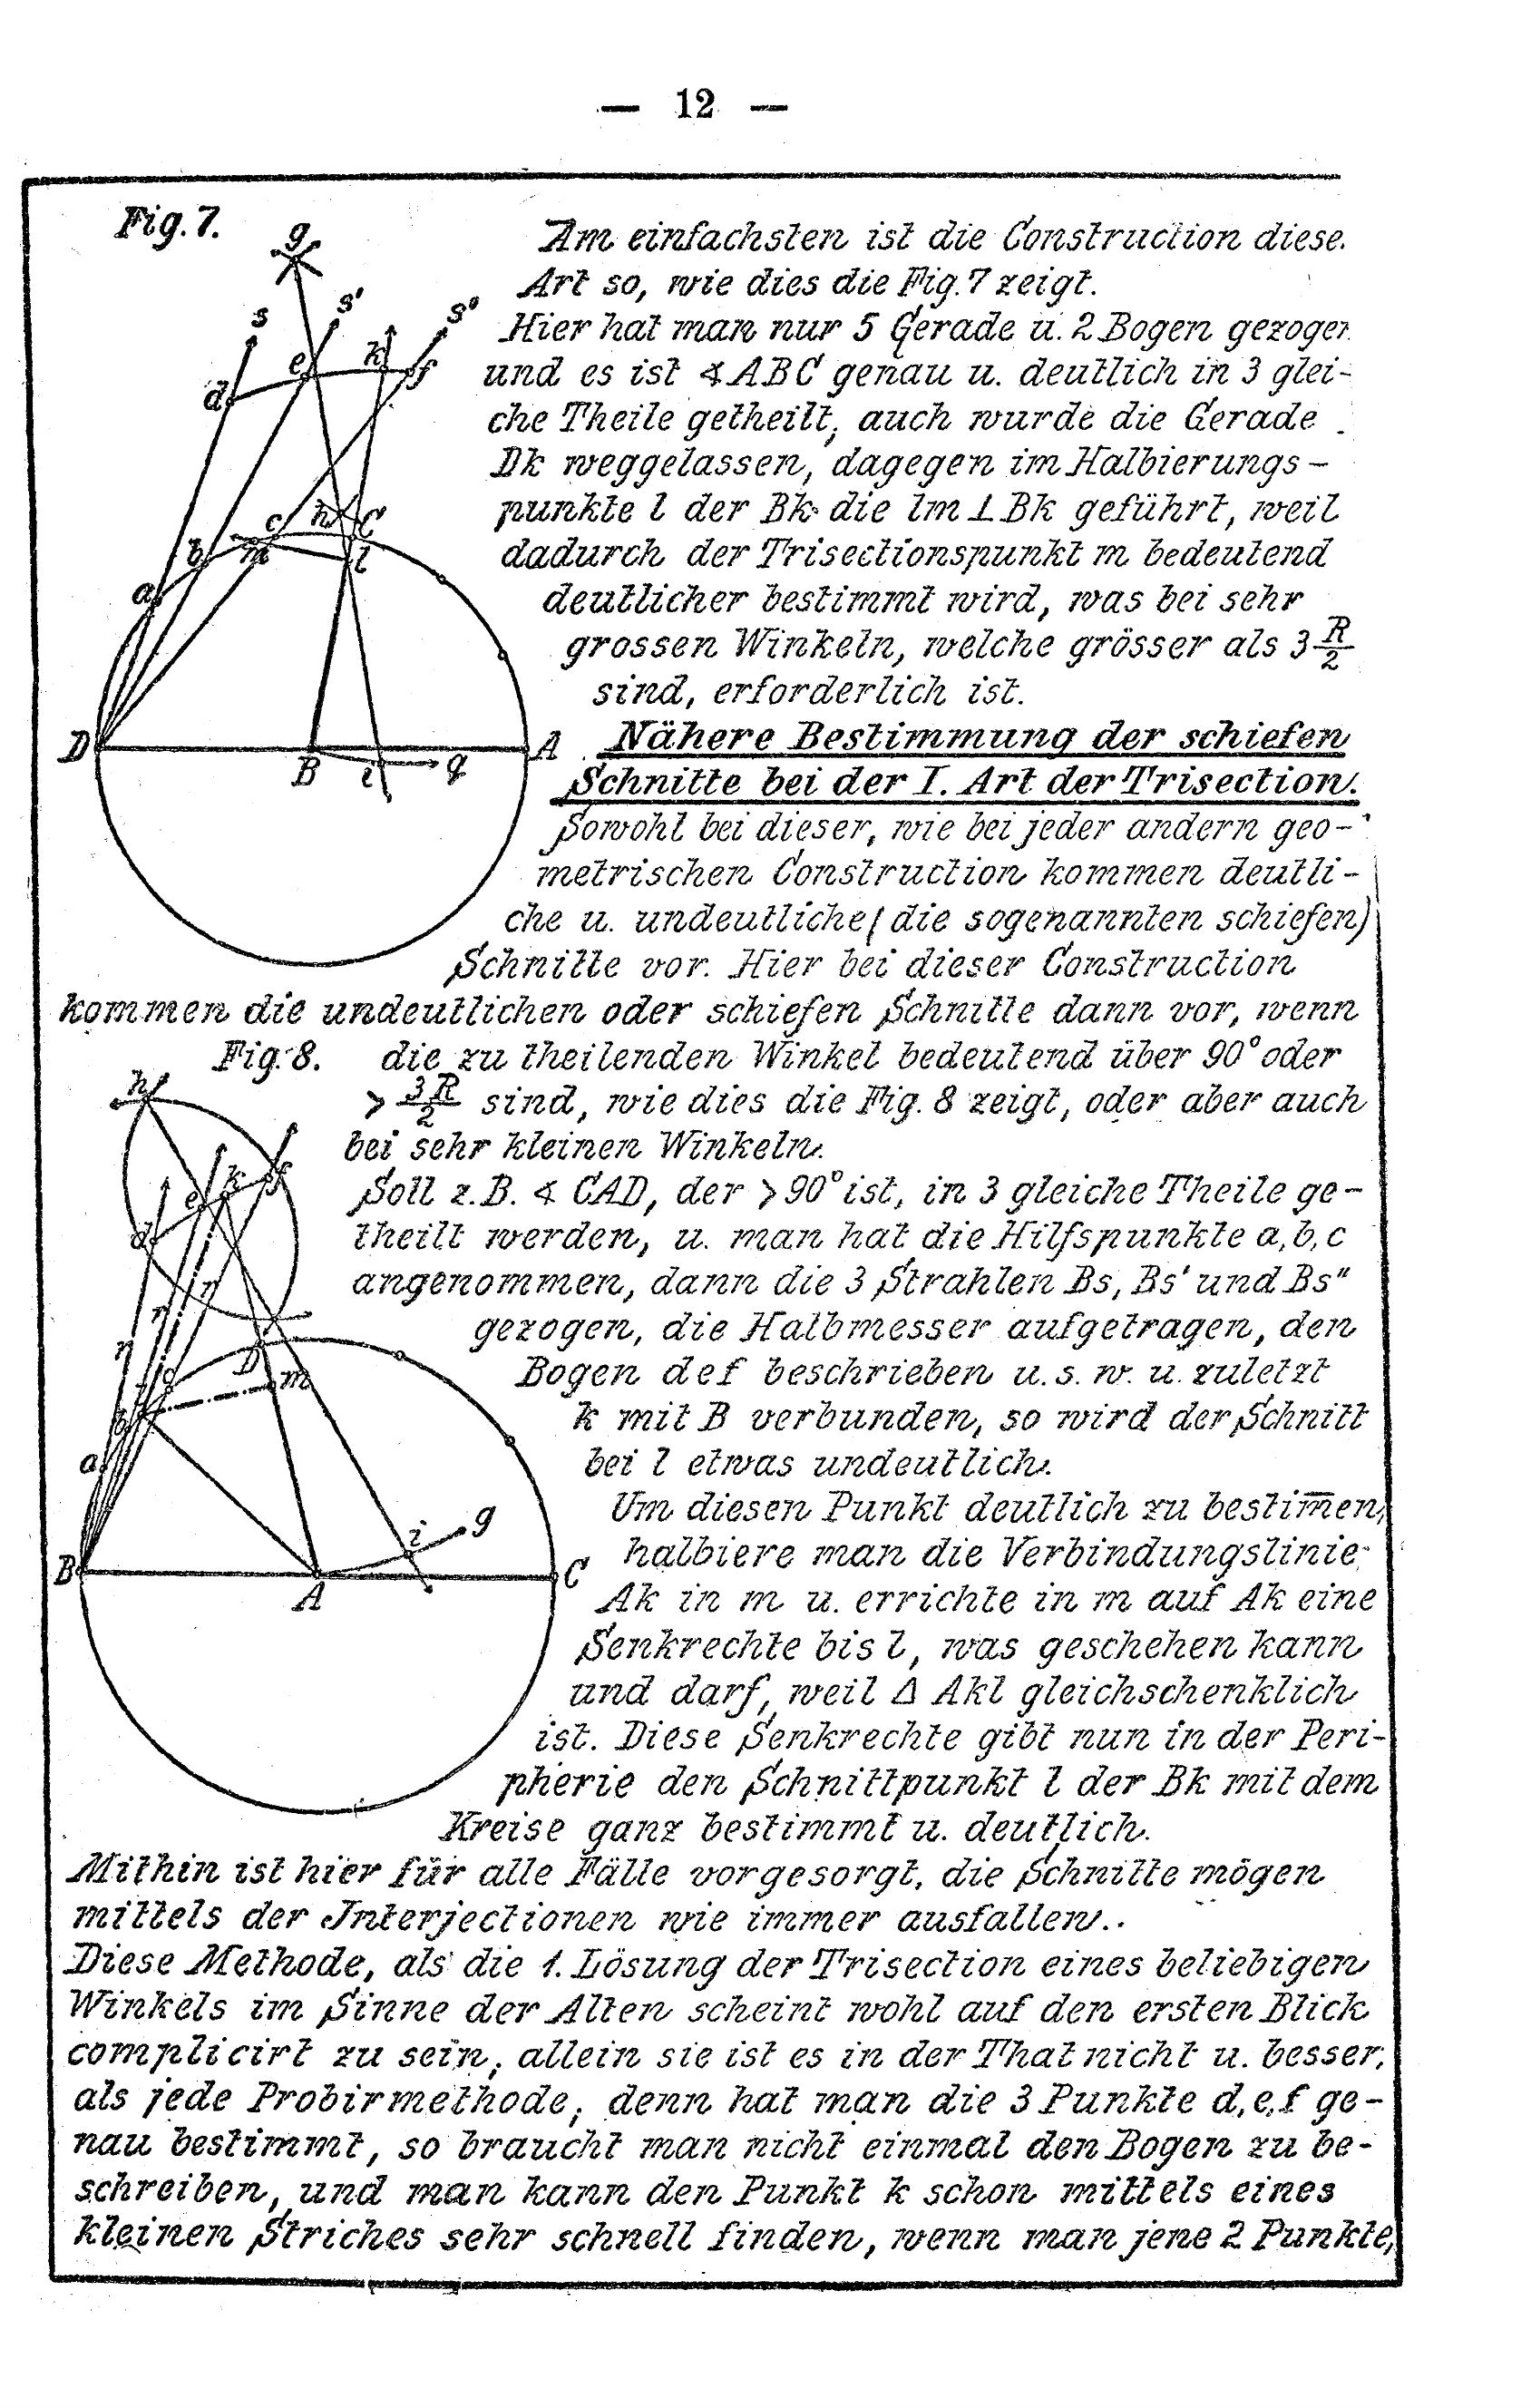 — 12 —
Fig. 7.
Am einfachsten ist die Construction diese.
Art so, wie dies die Fig. 7 zeigt.
Hier hat man nur 5 Gerade u. 2 Bogen gezogen
und es ist ∢ ABC genau u. deutlich in 3 glei-
che Theile getheilt, auch wurde die Gerade
Dk weggelassen, dagegen im Halbierungs-
punkte l der Bk die lm ⊥ Bk geführt, weil
dadurch der Trisectionspunkt m bedeutend
deutlicher bestimmt wird, was bei sehr
grossen Winkeln, welche grösser als 3 R/2
sind, erforderlich ist.
Nähere Bestimmung der schiefen
Schnitte bei der I. Art der Trisection.
Sowohl bei dieser, wie bei jeder andern geo-
metrischen Construction kommen deutli-
che u. undeutliche (die sogenannten schiefen)
Schnitte vor. Hier bei dieser Construction
kommen die undeutlichen oder schiefen Schnitte dann vor, wenn
Fig. 8.
die zu theilenden Winkel bedeutend über 90° oder
> 3R/2 sind, wie dies die Fig. 8 zeigt, oder aber auch
bei sehr kleinen Winkeln.
Soll z. B. ∢ CAD, der > 90° ist, in 3 gleiche Theile ge-
theilt werden, u. man hat die Hilfspunkte a, b, c
angenommen, dann die 3 Strahlen Bs, Bs' und Bs"
gezogen, die Halbmesser aufgetragen, den
Bogen def beschrieben u. s. w. u. zuletzt
k mit B verbunden, so wird der Schnitt
bei l etwas undeutlich.
Um diesen Punkt deutlich zu bestim̅en,
halbiere man die Verbindungslinie
Ak in m u. errichte in m auf Ak eine
Senkrechte bis l, was geschehen kann
und darf, weil Δ Akl gleichschenklich
ist. Diese Senkrechte gibt nun in der Peri-
pherie den Schnittpunkt l der Bk mit dem
Kreise ganz bestimmt u. deutlich.
Mithin ist hier für alle Fälle vorgesorgt, die Schnitte mögen
mittels der Interjectionen wie immer ausfallen..
Diese Methode, als die 1. Lösung der Trisection eines beliebigen
Winkels im Sinne der Alten scheint wohl auf den ersten Blick
complicirt zu sein, allein sie ist es in der That nicht u. besser,
als jede Probirmethode, denn hat man die 3 Punkte d, e, f ge-
nau bestimmt, so braucht man nicht einmal den Bogen zu be-
schreiben, und man kann den Punkt k schon mittels eines
kleinen Striches sehr schnell finden, wenn man jene 2 Punkte,